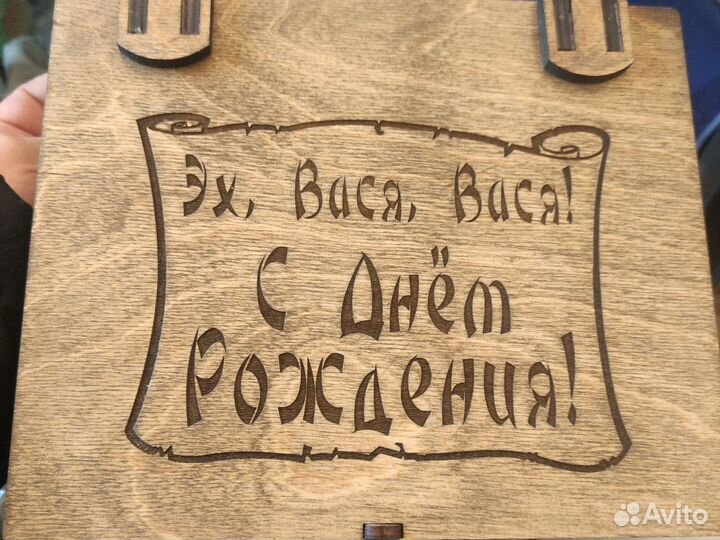 Эх, Вася, Вася!
С Днём
Рождения!
Avito